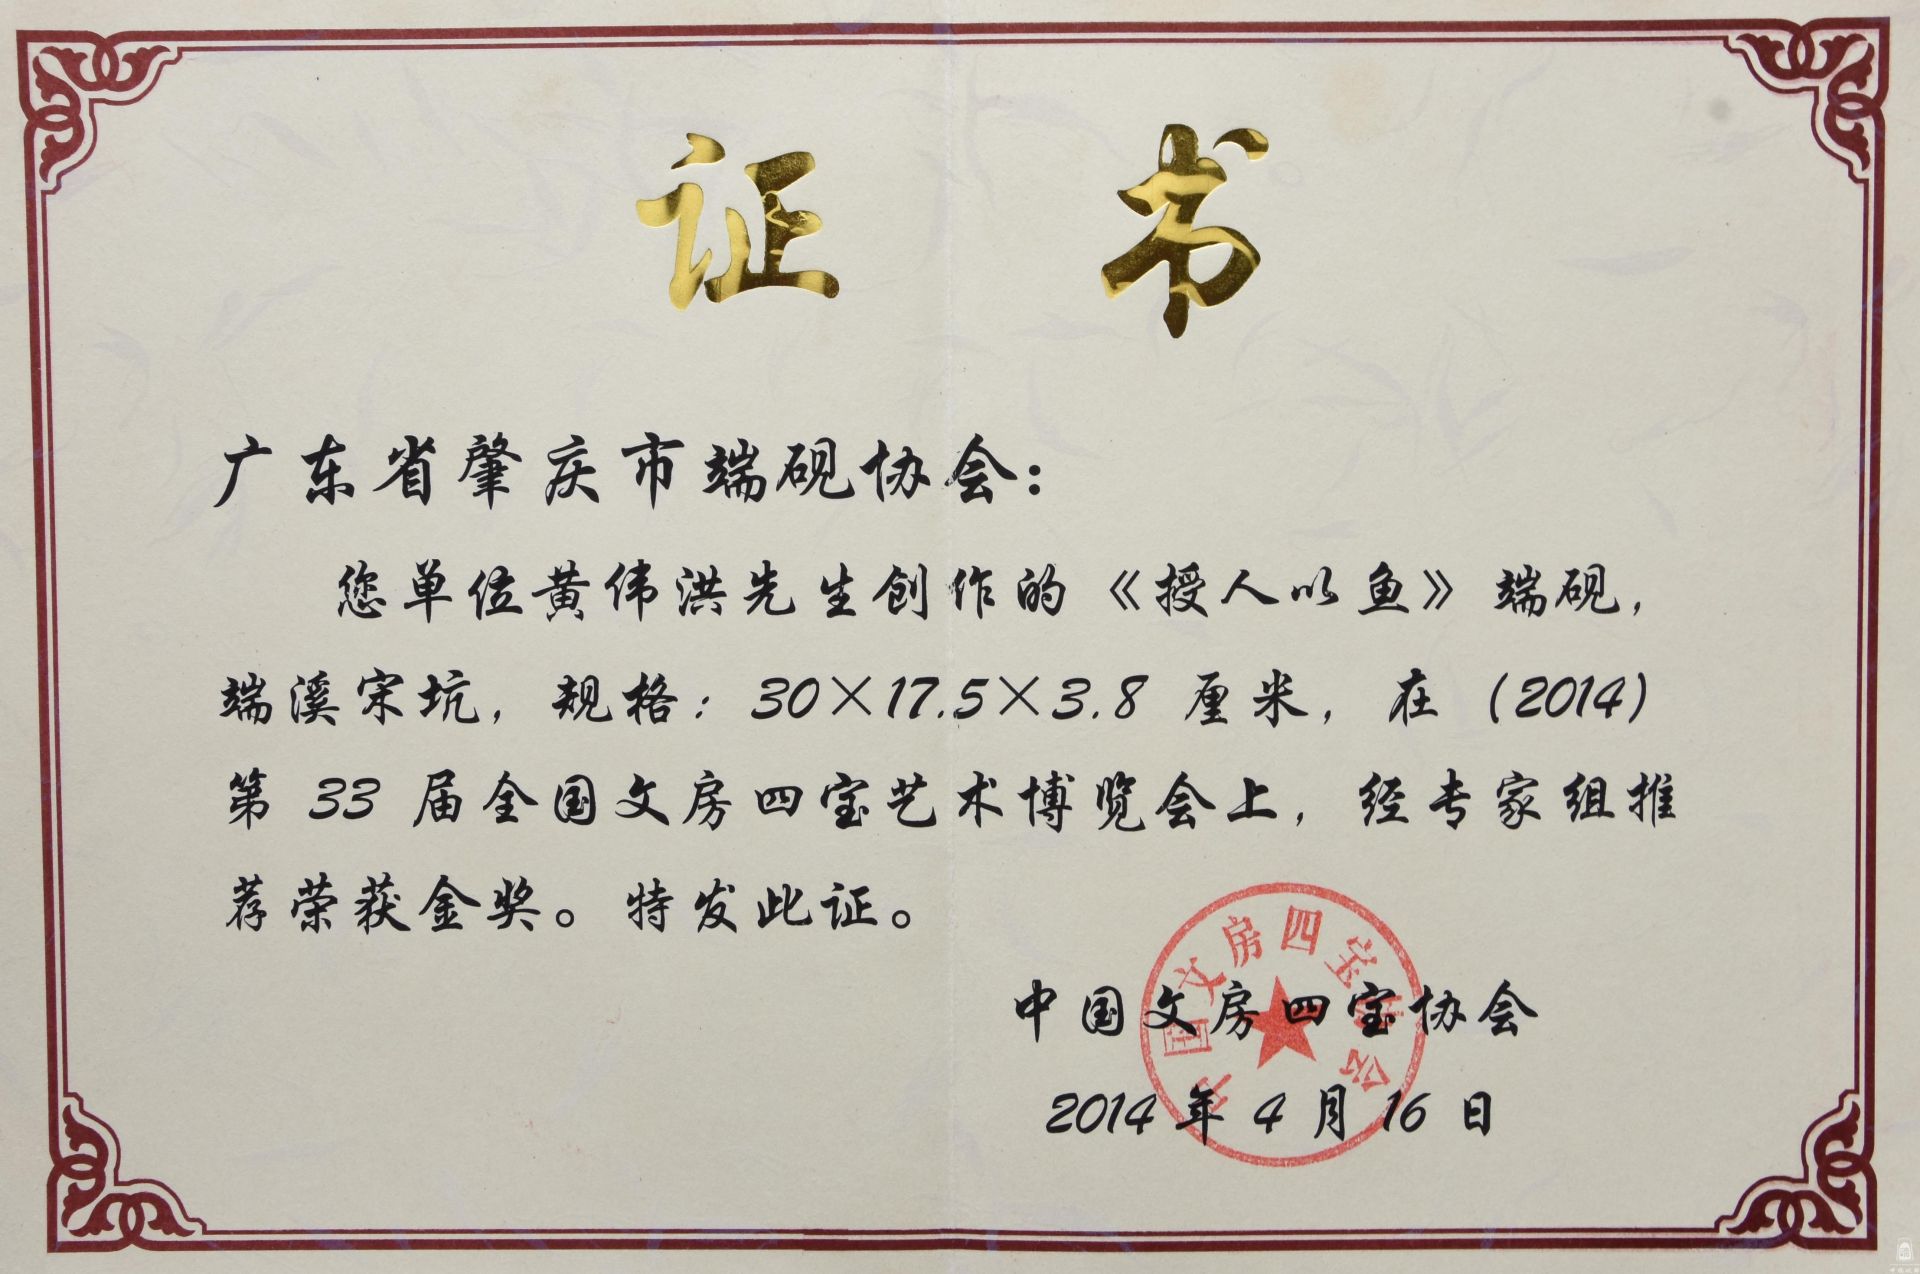 证书
广东省肇庆市端砚协会：
您单位黄伟洪先生创作的《授人以鱼》端砚，
端溪宋坑，规格：30×17.5×3.8 厘米，在（2014）
第 33 届全国文房四宝艺术博览会上，经专家组推
荐荣获金奖。特发此证。
中国文房四宝协会
中国文房四宝协会
2014 年 4 月 16 日